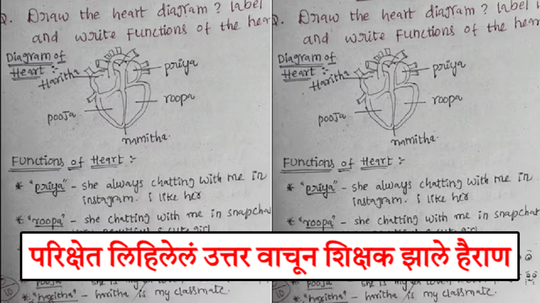 Q. Draw the heart diagram? label
and write functions of the hear
Diagram of
Heart :-
Haritha
priya
pooja
roopa
namitha
Functions of Heart :-
* "priya" - she always chatting with me in
instagram. i like her
* "roopa" - she chatting with me in snapchat
* "haritha" - hritha is my classmate.
Draw the heart diagram? label
and write functions of the hear
Diagram of
Heart :-
Haritha
priya
pooja
roopa
namitha
Functions of Heart :-
* "priya" - she always chatting with me in
instagram. i like her
* "roopa" - she chatting with me in snapcha
* "haritha" - hritha is my classmate.
परिक्षेत लिहिलेलं उत्तर वाचून शिक्षक झाले हैराण